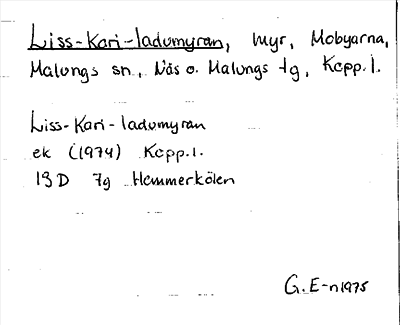 Liss-Kari-ladumyran, myr, Mobyarna,
Malungs sn., Nås o. Malungs tg, Kopp. l.
Liss-Kari-ladumyran
ek (1974) Kopp. l.
13 D 7g Hemmerkölen
G. E-n 1975